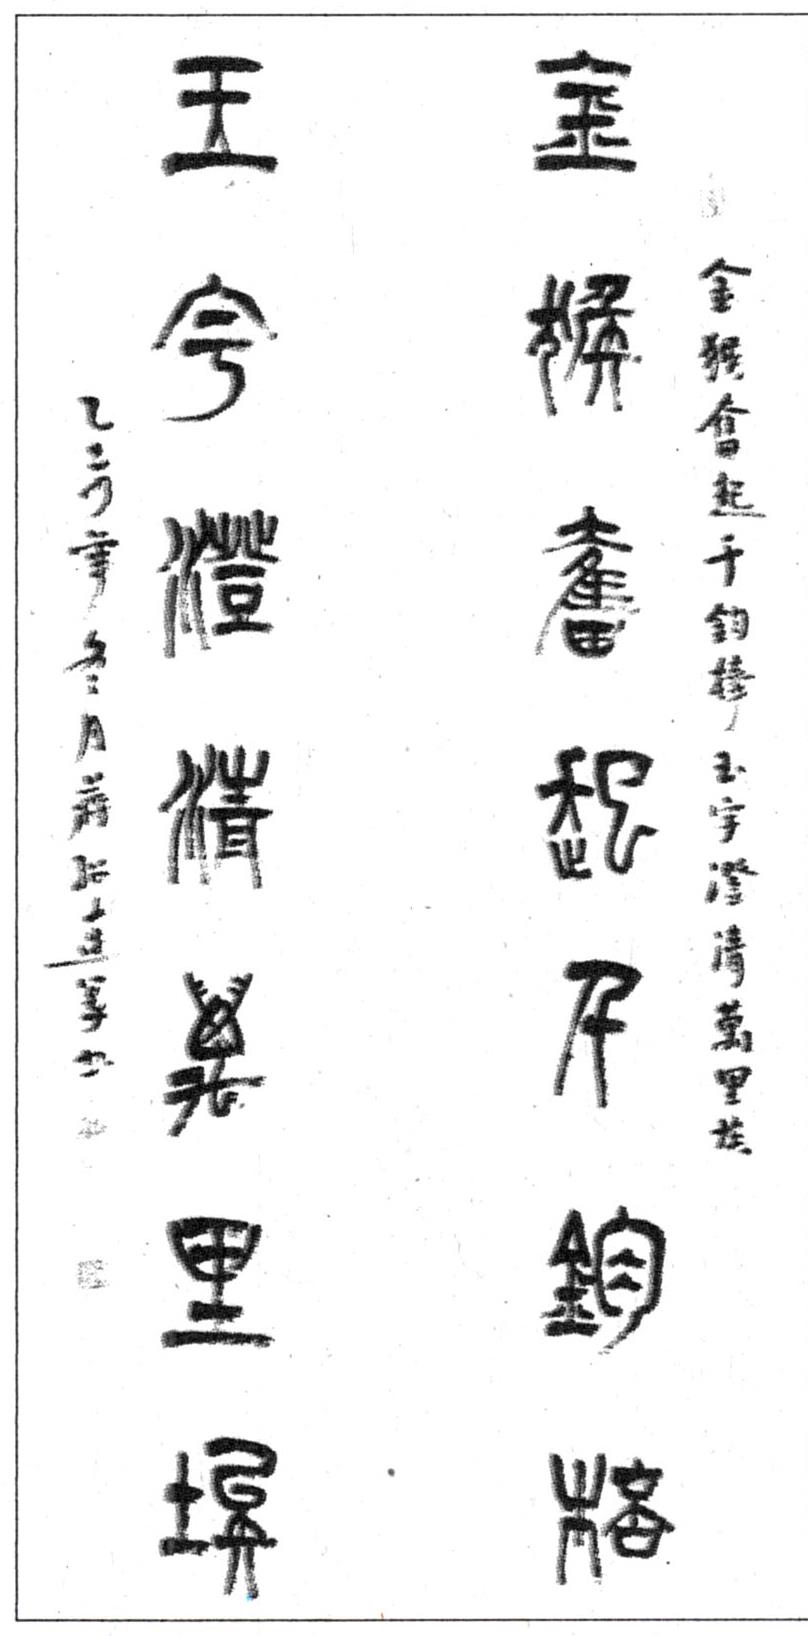 金猴奮起千鈞棒玉宇澄清萬里埃
金猴奮起千鈞棒
玉宇澄清萬里埃
冬月